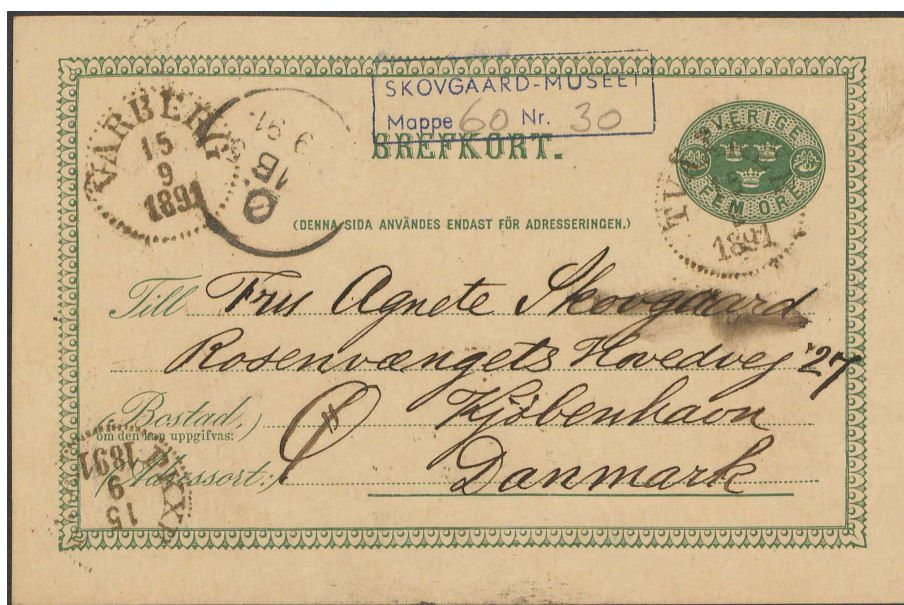 SKOVGAARD-MUSEET
Mappe 60 Nr. 30
BREFKORT.
VARBERG
15
9
1891
Ø
1B
9 91
SVERIGE
FEM ÖRE
1891
(DENNA SIDA ANVÄNDES ENDAST FÖR ADRESSERINGEN.)
Till Fru Agnete Skovgaard
Rosenvængets Hovedvej 27
(Bostad,) Kjøbenhavn
om den kan uppgifvas:
(Adressort:) Danmark
PKXP
15
9
1891